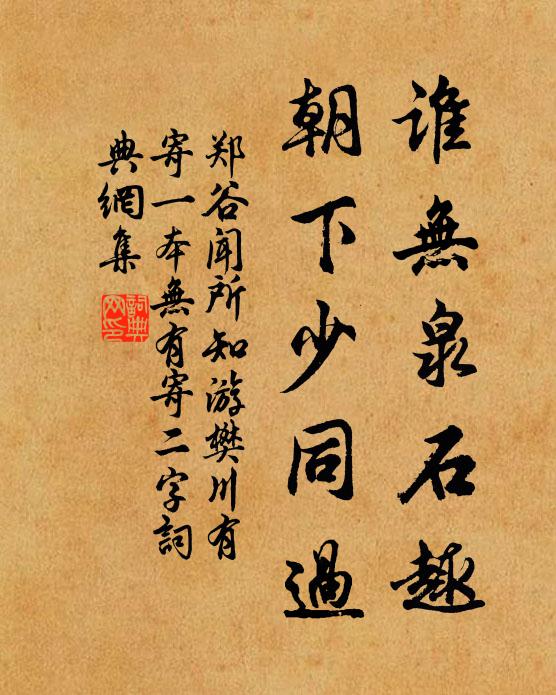 谁無泉石趣
朝下少同過
郑谷闻所知游樊川有
寄一本無有寄二字詞
典網集
詞典网印